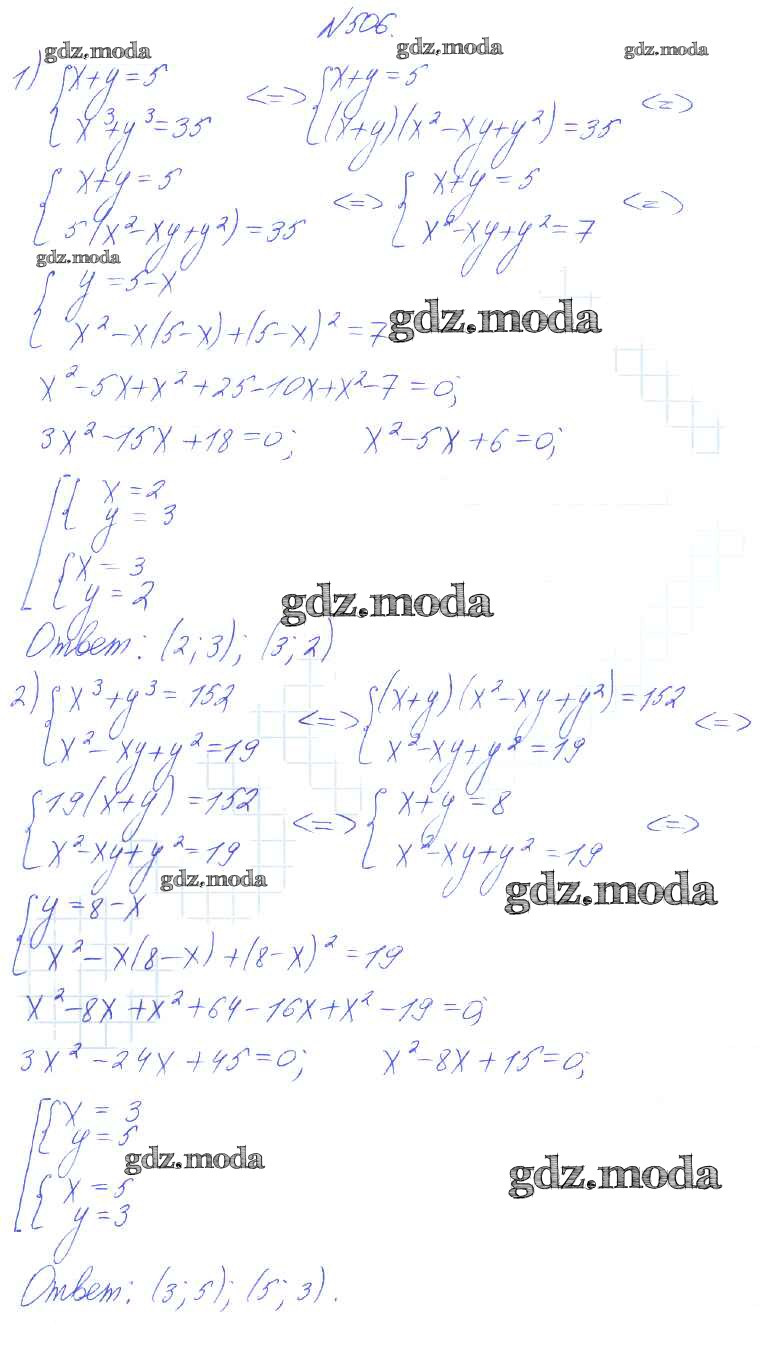 N506.
gdz.moda gdz.moda gdz.moda
1) { x+y=5 <=> { x+y=5
x³+y³=35 (x+y)(x²-xy+y²)=35 <=>
{ x+y=5 <=> { x+y=5 <=>
5(x²-xy+y²)=35 x²-xy+y²=7
gdz.moda
{ y=5-x
x²-x(5-x)+(5-x)²=7 gdz.moda
x²-5x+x²+25-10x+x²-7=0;
3x²-15x+18=0; x²-5x+6=0;
[ { x=2
y=3
{ x=3
y=2 gdz.moda
Ответ: (2;3); (3;2)
2) { x³+y³=152 <=> { (x+y)(x²-xy+y²)=152 <=>
x²-xy+y²=19 x²-xy+y²=19
{ 19(x+y)=152 <=> { x+y=8 <=>
x²-xy+y²=19 x²-xy+y²=19
gdz.moda gdz.moda
{ y=8-x
x²-x(8-x)+(8-x)²=19
x²-8x+x²+64-16x+x²-19=0;
3x²-24x+45=0; x²-8x+15=0;
[ { x=3
y=5
gdz.moda gdz.moda
{ x=5
y=3
Ответ: (3;5); (5;3).